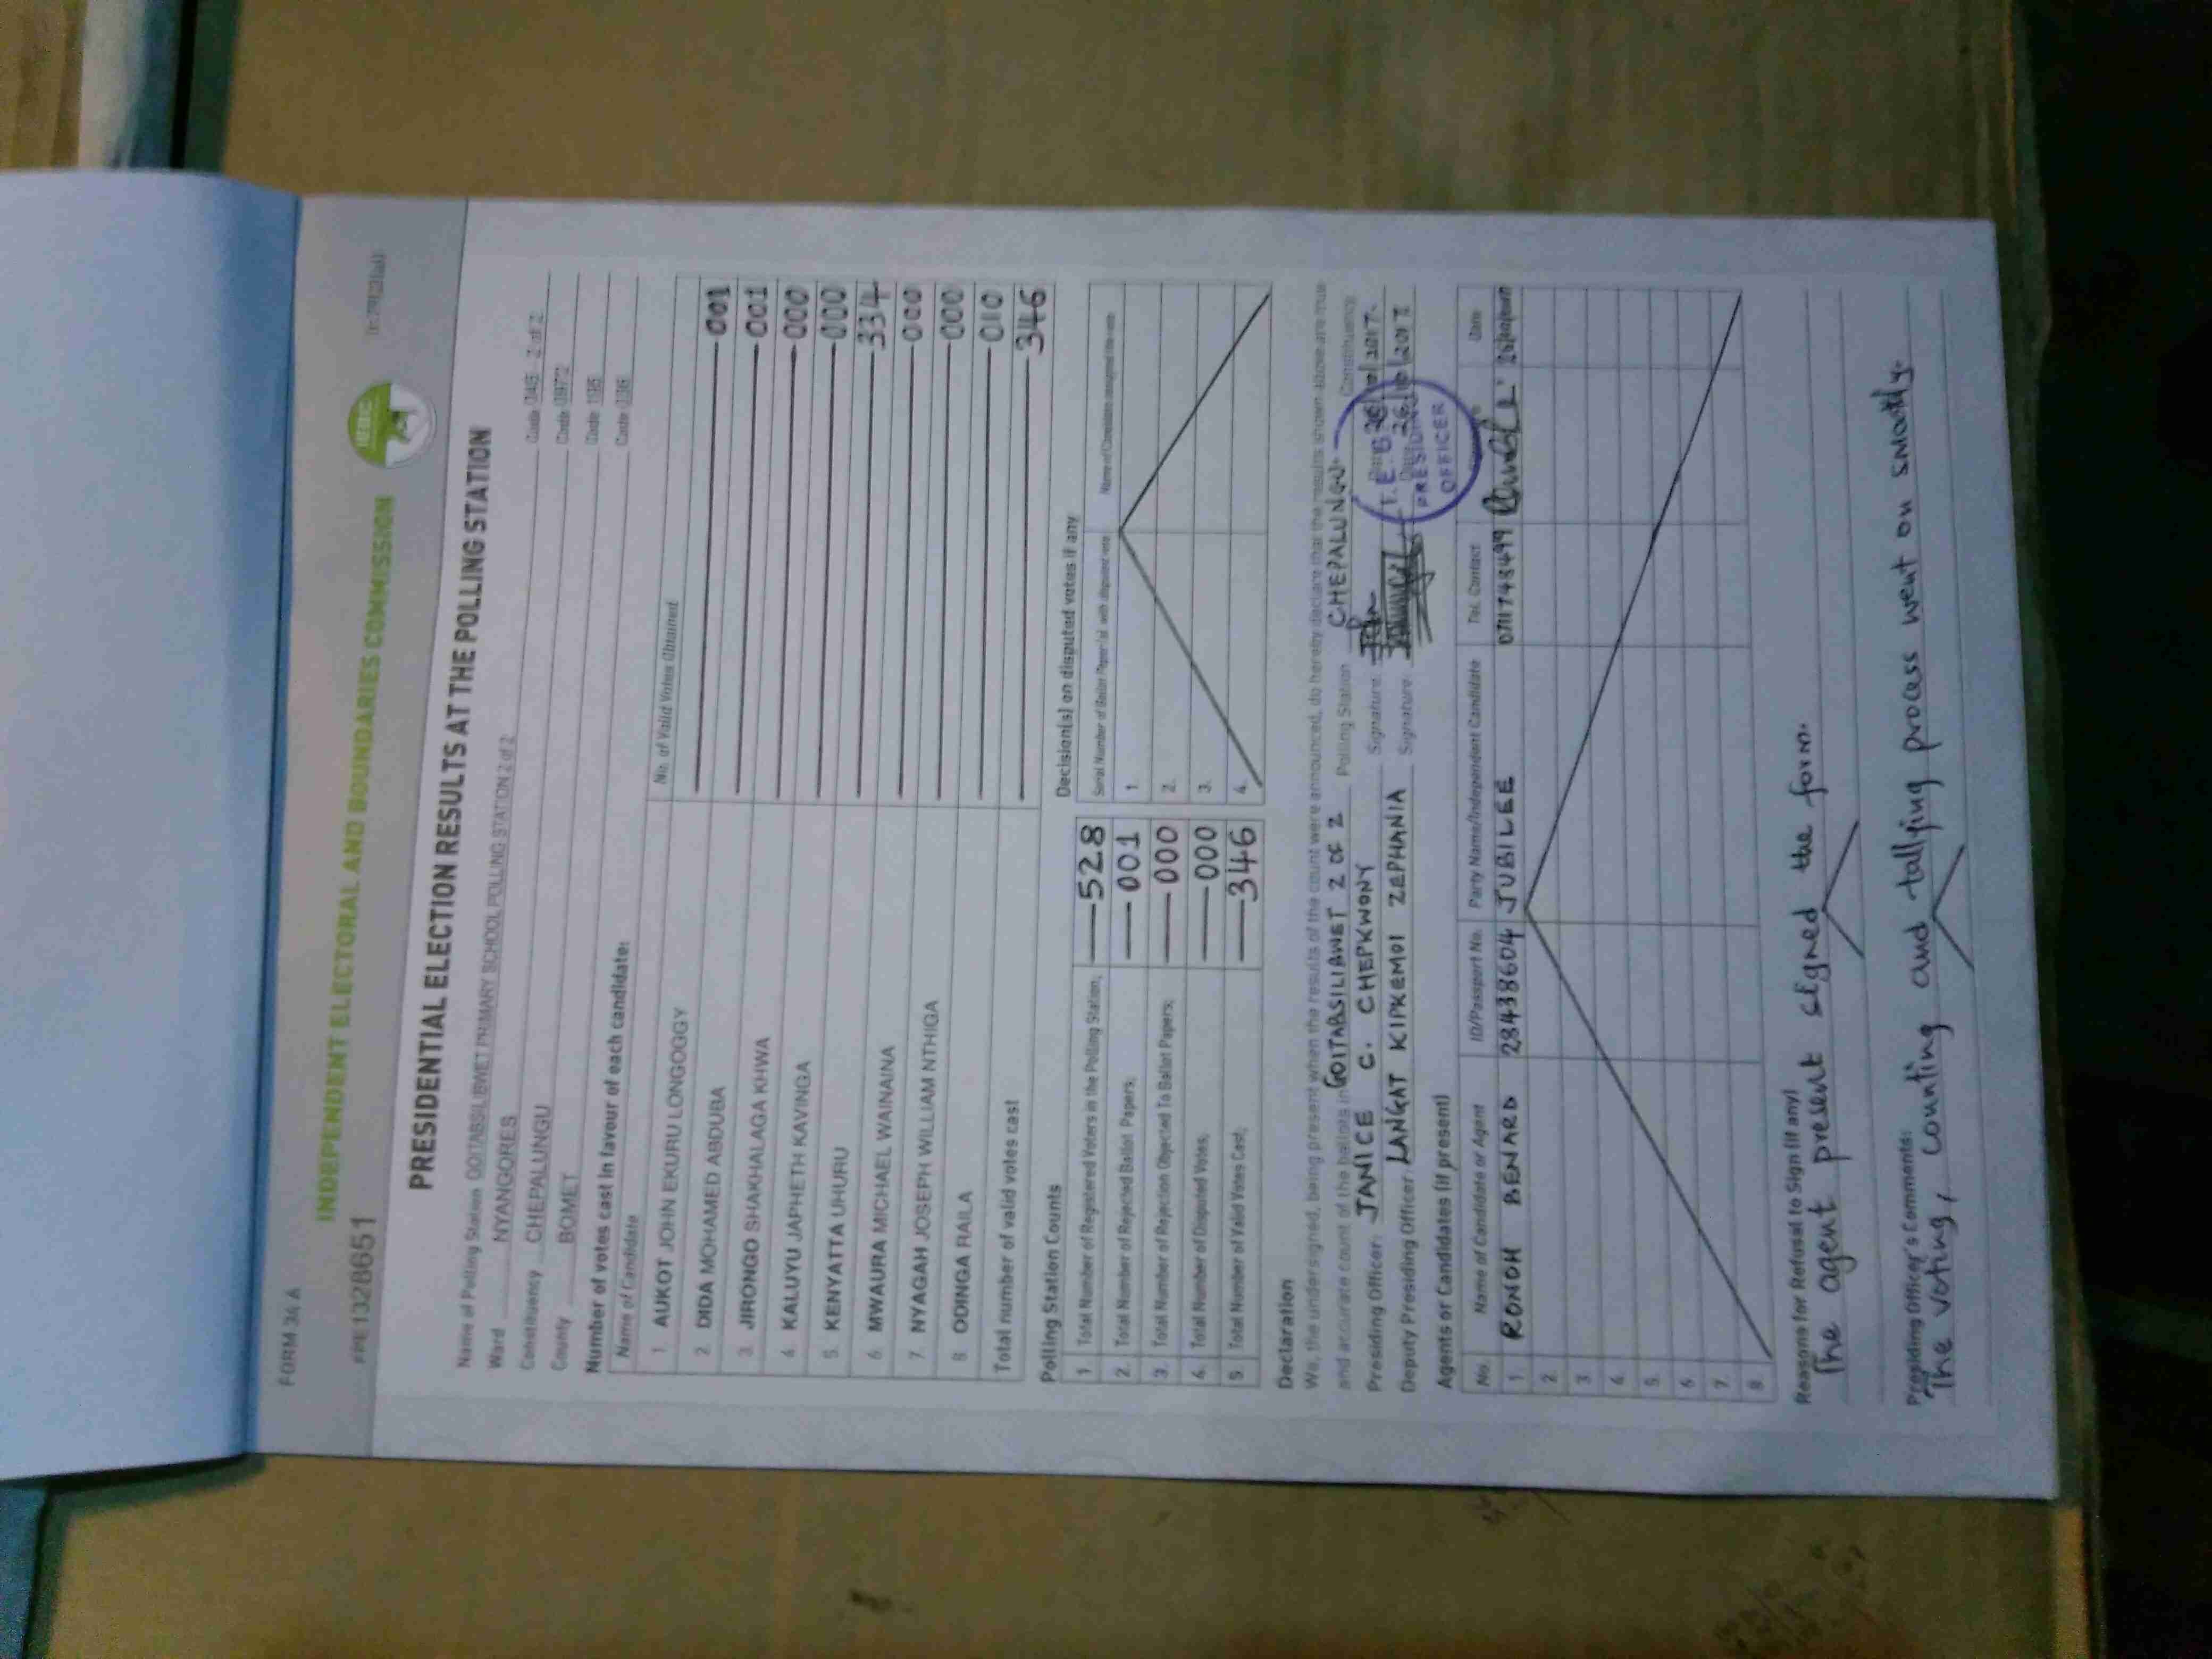 FORM 34 A
INDEPENDENT ELECTORAL AND BOUNDARIES COMMISSION
IEBC
#PE1328651
PRESIDENTIAL ELECTION RESULTS AT THE POLLING STATION
Name of Polling Station GOITABSILIBWET PRIMARY SCHOOL POLLING STATION 2 of 2 Code 045 2 of 2
Ward NYANGORES Code
Constituency CHEPALUNGU Code 195
County BOMET Code 036
Number of votes cast in favour of each candidate:
Name of Candidate No. of Valid Votes Obtained
1. AUKOT JOHN EKURU LONGOGGY 001
2. DIDA MOHAMED ABDUBA 001
3. JIRONGO SHAKHALAGA KHWA 000
4. KALUYU JAPHETH KAVINGA 000
5. KENYATTA UHURU 334
6. MWAURA MICHAEL WAINAINA 000
7. NYAGAH JOSEPH WILLIAM NTHIGA 000
8. ODINGA RAILA 010
Total number of valid votes cast 346
Polling Station Counts
1. Total Number of Registered Voters in the Polling Station; 528
2. Total Number of Rejected Ballot Papers; 001
3. Total Number of Rejection Objected To Ballot Papers; 000
4. Total Number of Disputed Votes; 000
5. Total Number of Valid Votes Cast; 346
Decision(s) on disputed votes if any
Serial Number of Ballot Paper(s) with disputed vote Name of Candidate assigned the vote
1.
2.
3.
4.
Declaration
We, the undersigned, being present when the results of the count were announced, do hereby declare that the results shown above are true
and accurate count of the ballots in GOITABSILIBWET 2 OF 2 Polling Station CHEPALUNGU Constituency
Presiding Officer: JANICE C. CHEPKWONY Signature 26/10/2017
Deputy Presiding Officer LANGAT KIPKEMOI ZEPHANIA Signature 26/10/2017
PRESIDING
OFFICER
Agents or Candidates (if present)
No. Name of Candidate or Agent ID/Passport No. Party Name/Independent Candidate Tel. Contact Date
1. RONOH BENARD 28438604 JUBILEE 0717484499 26/10/2017
2.
3.
4.
5.
6.
7.
8.
Reasons for Refusal to Sign (if any)
The agent present signed the form.
Presiding Officer's Comments:
The voting, counting and tallying process went on smootly.